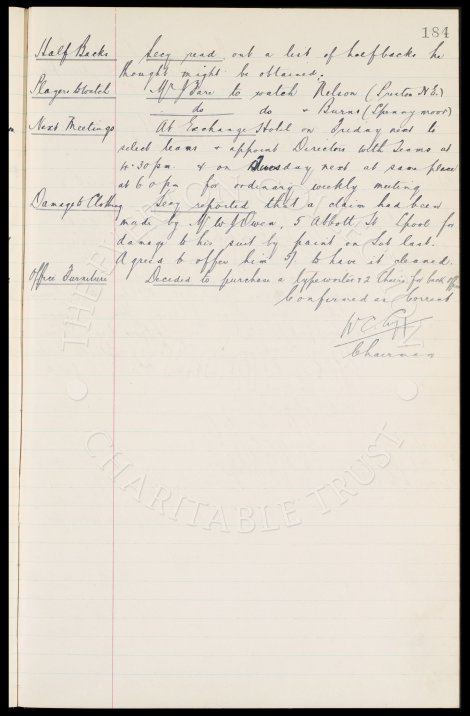 184
Half Backs Secy read out a list of halfbacks he
thought might be obtained.
Players to Watch Mr J Bare to watch Nelson (Preston N.E.)
do do & Burns (Spennymoor)
Next Meetings At Exchange Hotel on Friday next to
select teams & appoint Directors with Teams at
4.30 pm & on Tuesday next at same place
at 6 0 pm for ordinary weekly meeting
Damage to Clothing Secy reported that a claim had been
made by Mr W J Owen, 5 Abbott St Lpool for
damage to his suit by paint on Sat last.
Agreed to offer him 5/ to have it cleaned.
Office Furniture Decided to purchase a typewriter & 2 Chairs for back office
Confirmed as Correct
Chairman
CHARITABLE TRUST